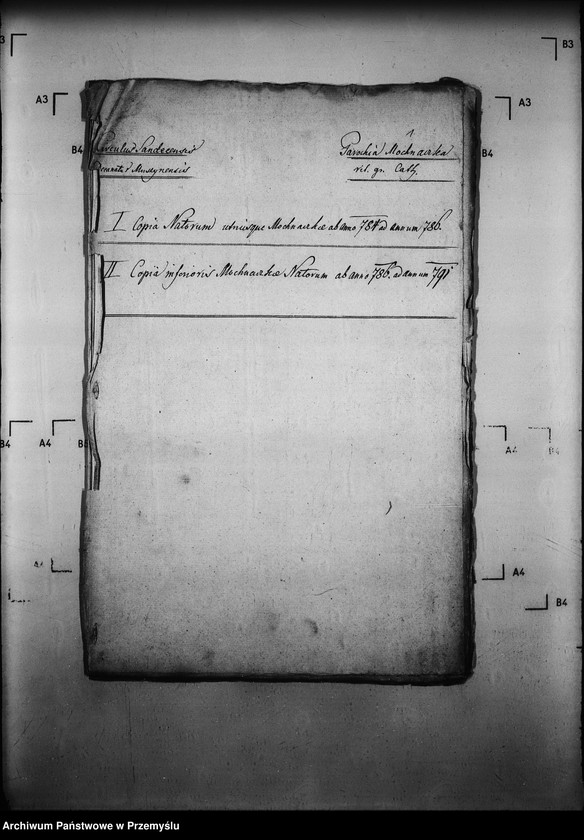 B3
A3
B4
Circulus Sandecensis
Decanatus Muszynensis
1
Parochia Mochnaczka
rit. gr. Cath.
B3
A3
B4
I Copia Natorum utriusque Mochnaczkae ab anno 784 ad annum 786.
II Copia inferioris Mochnaczkae Natorum ab anno 786. ad annum 791
B4
A4
A4
B4
A4
A4
B4
Archiwum Państwowe w Przemyślu